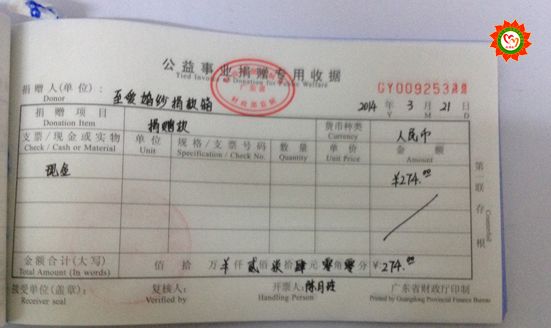 公益事业捐赠专用收据
Tied Invoice of Donation for Public Welfare
捐赠人(单位): 至爱婚纱捐款箱 GY00925383
Donor 2014 年 3 月 21 日
Y M D
捐赠项目 捐赠款 货币种类 人民币
Donation Item Currency
支票/现金或实物 单位 规格/支票号码 数量 单价 金额
Check / Cash or Material Unit Specification / Check No. Quantity Unit Price Amount
现金 ¥274.00
第二联 存根
Counterfoil
金额合计(大写) 佰 拾 万 仟 贰佰 柒拾 肆元 零角 零分 ¥: 274.00
Total Amount (In words)
接受单位(盖章): 复核人: 开票人: 广东省财政厅印制
Receiver seal Verified by Handling Person Printed by Guangdong Provincial Finance Bureau